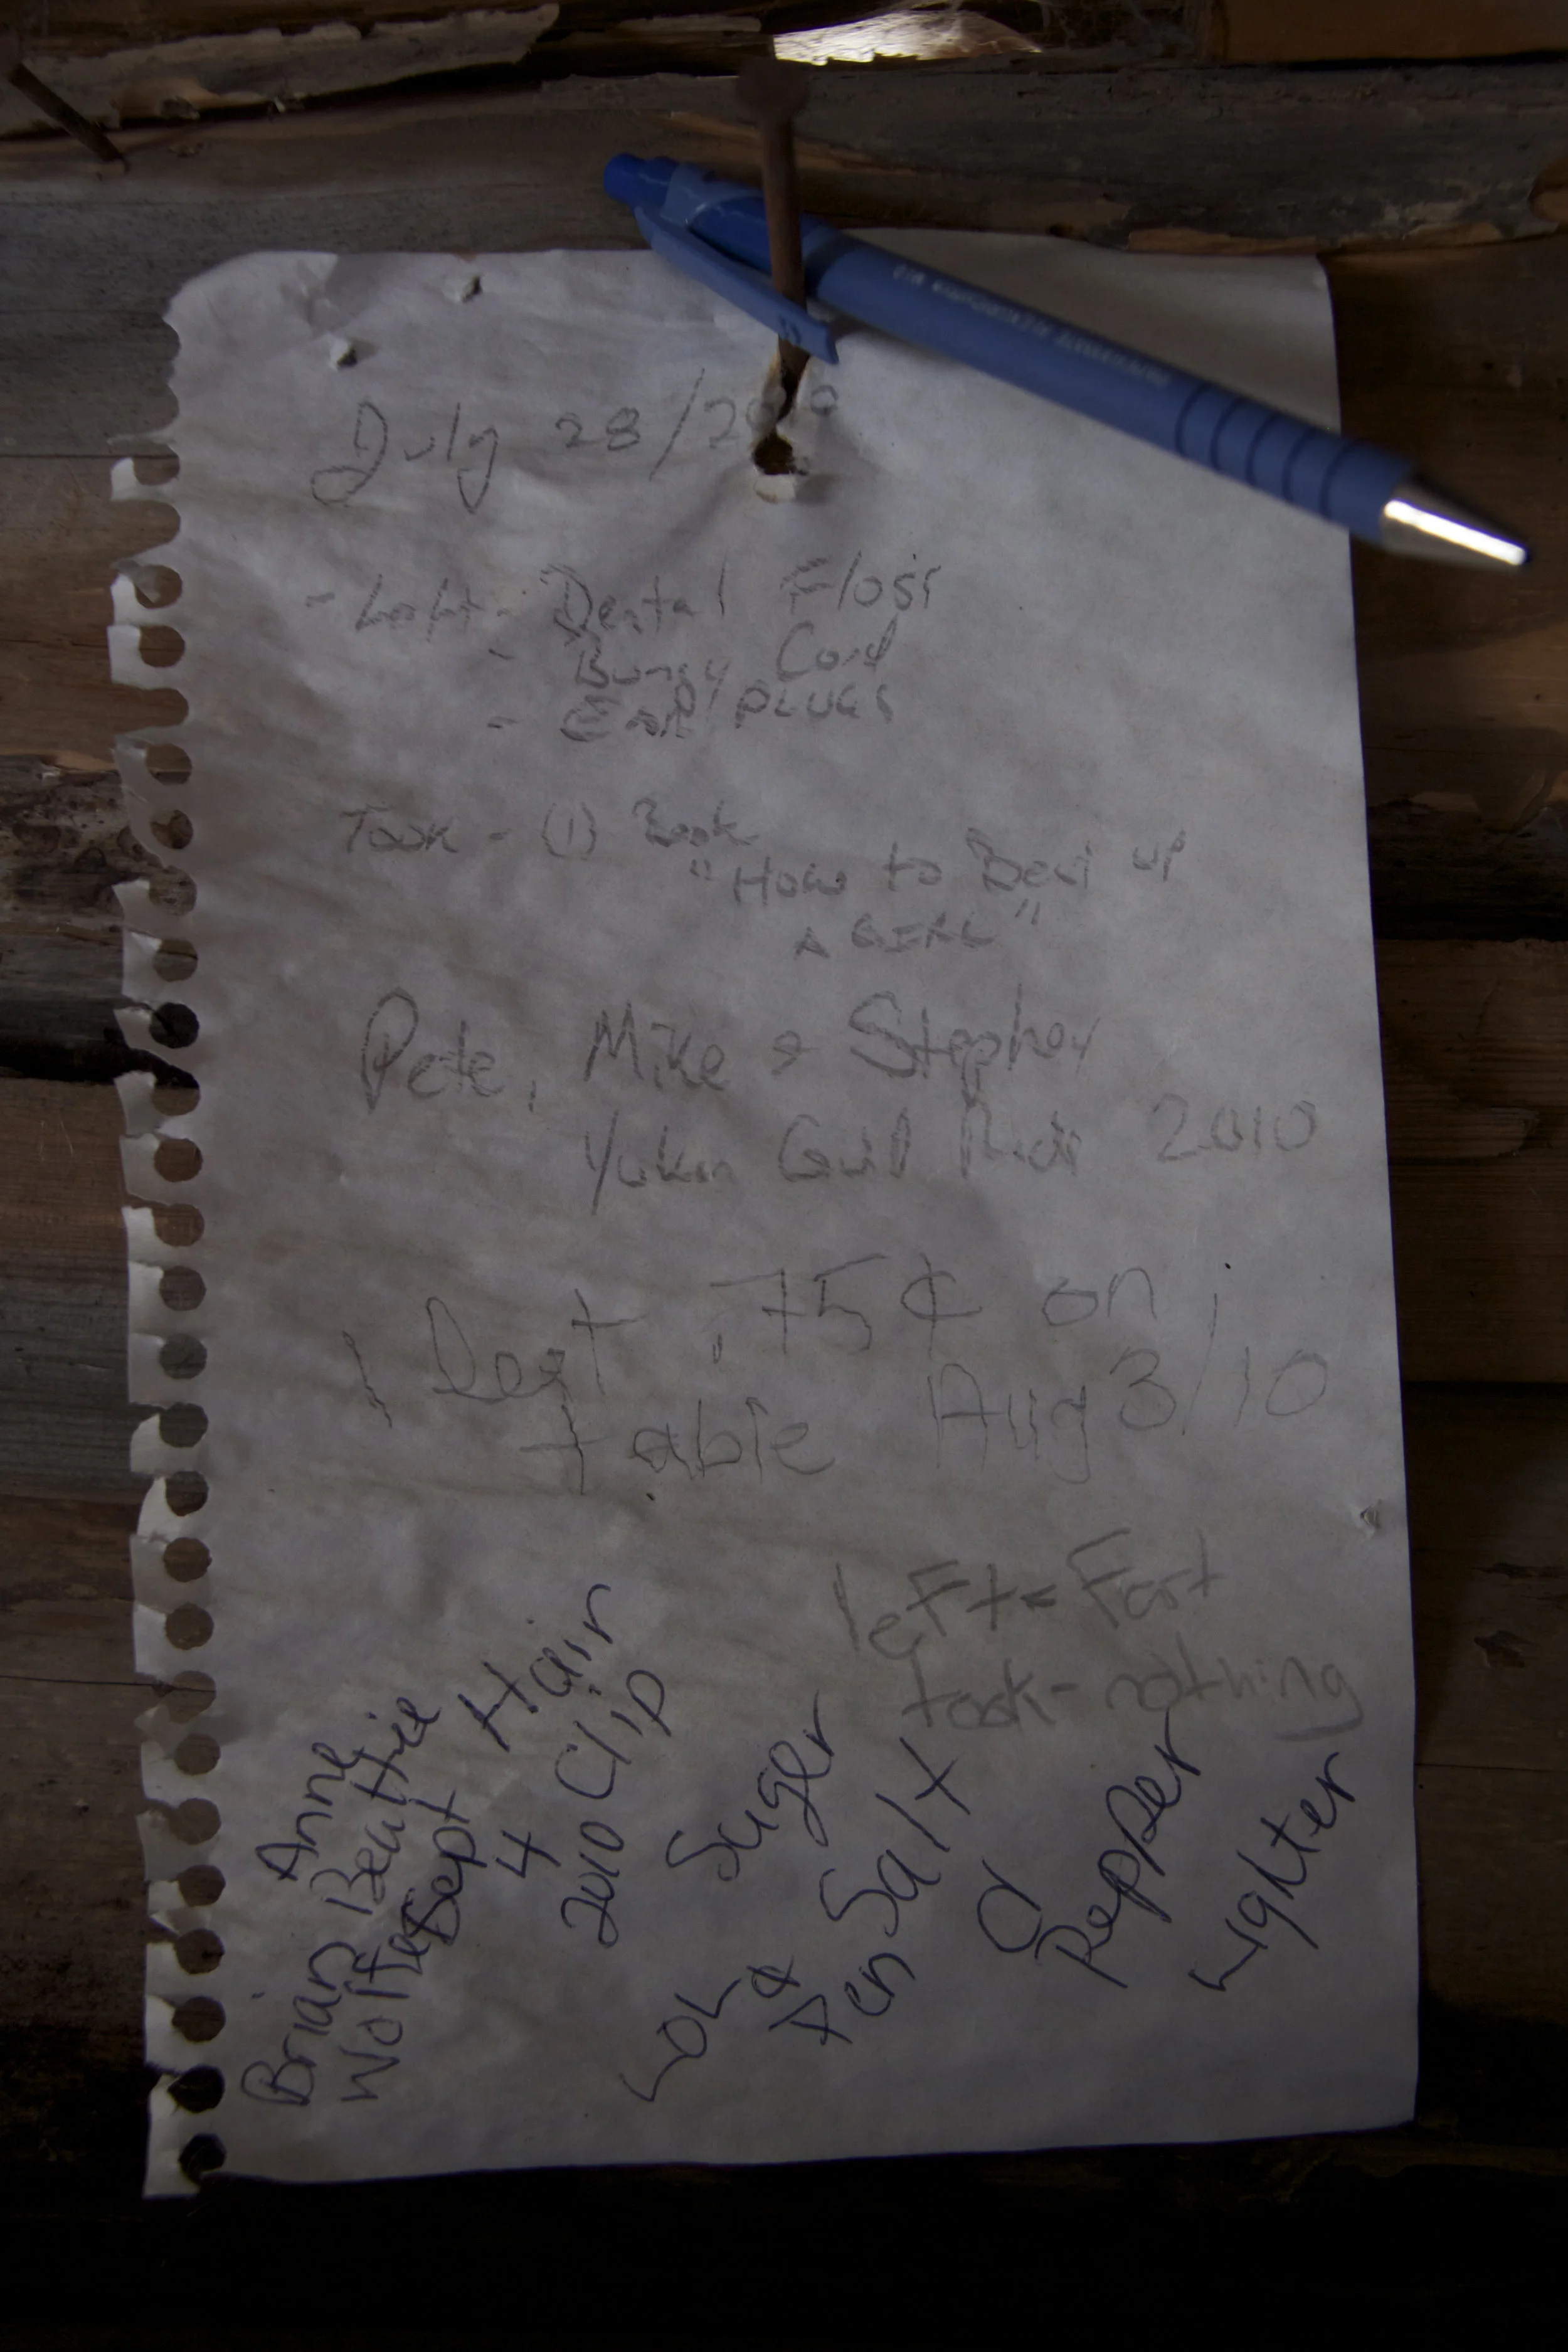 July 28/2010
- Left - Dental Floss
- Bungy Cord
- Ear PLUGS
Took - (1) Book
"How to Beat up
A GIRL"
Pete, Mike & Stephen
Yukon 2010
I Left .75¢ on
table Aug 3/10
leFt - Fart
took - nothing
Anne
Brian Beattie
Sept
4
2010
Hair
Clip
LOL
Suger
&
Pen Salt
Pepper
Lighter